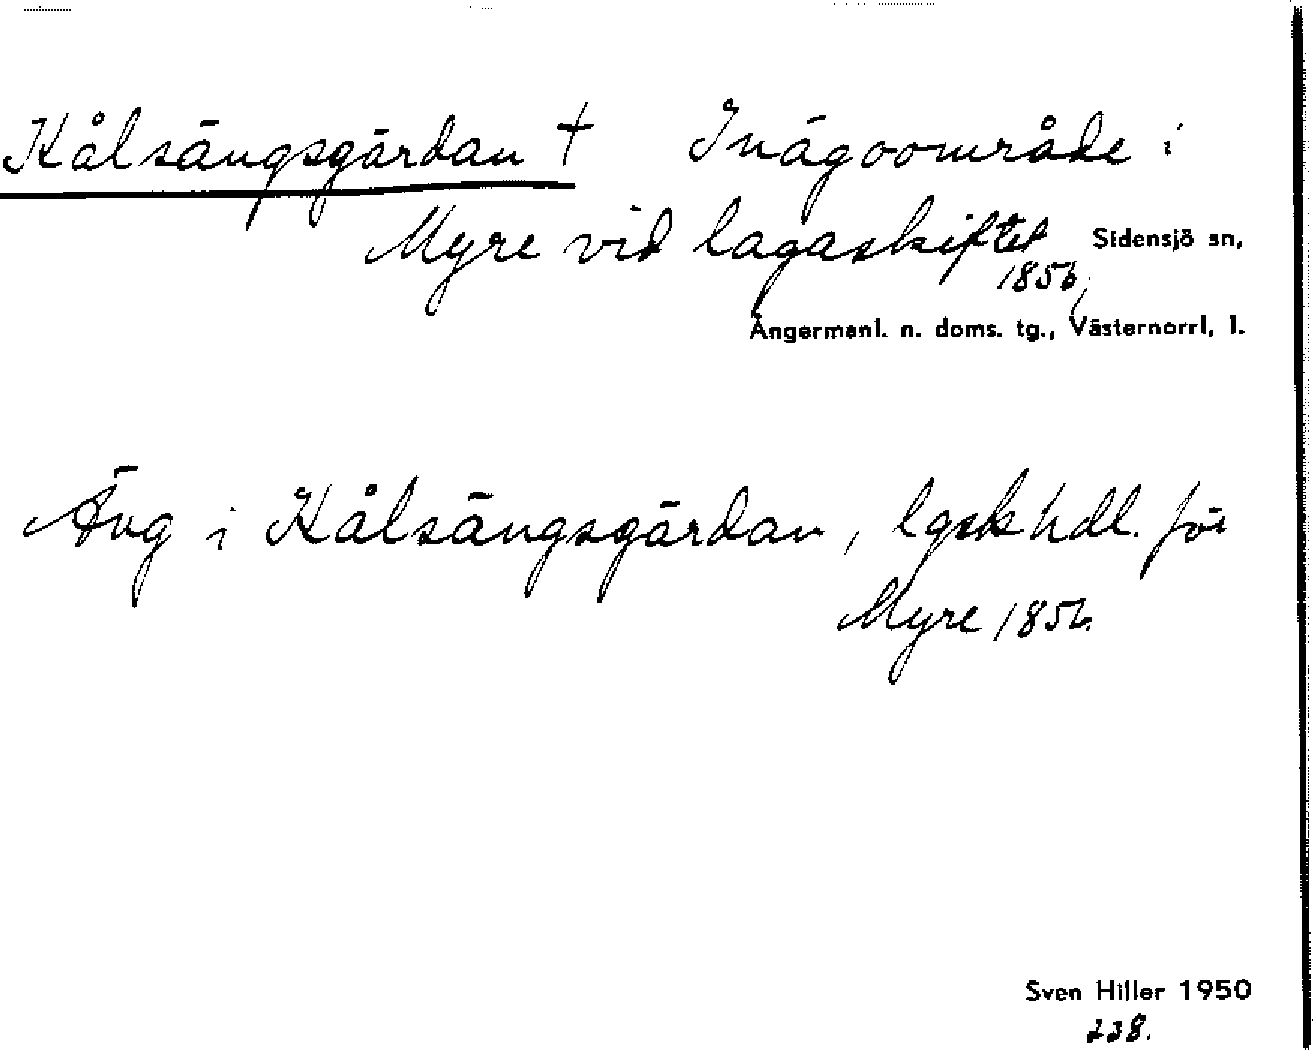 Kålsängsgärdan † Inägoområde i
Myre vid lagaskiftet Sidensjö sn,
1856
Ångermanl. n. doms. tg., Västernorrl. l.
Äng i Kålsängsgärdan, lgskhdl. för
Myre 1856.
Sven Hiller 1950
238.